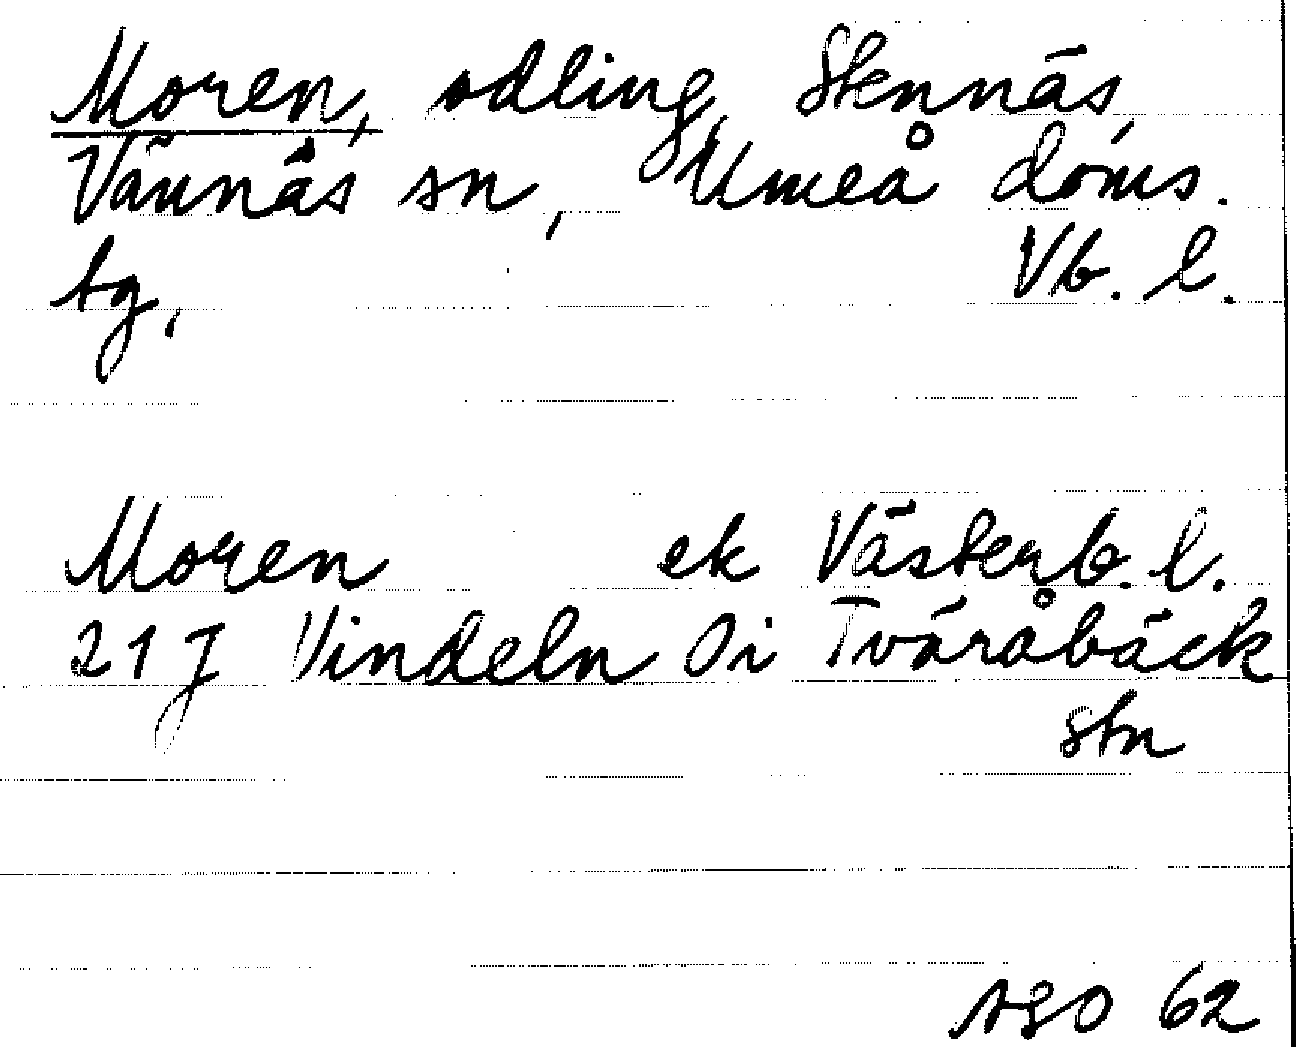 Moren, odling, Stennäs,
Vännäs sn, Umeå doms.
tg, Vb. l.
Moren ek Västerb. l.
21 J Vindeln Öi Tväråbäck
stn
SSO 62